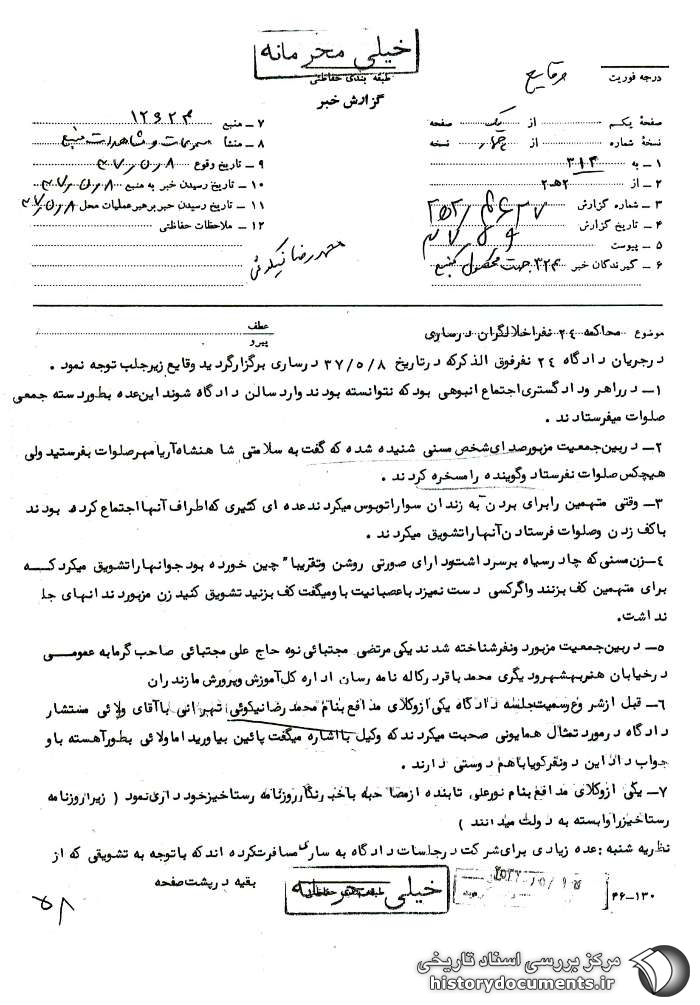 خیلی محرمانه
طبقه بندی حفاظتی
گزارش خبر
درجه فوریت
وقایع
صفحهٔ یکم از یک صفحه
نسخهٔ شماره از چهار نسخه
۱ – به ۳۱۲
۲ – از ۲هـ۲
۳ – شماره گزارش
۴ – تاریخ گزارش
۵ – پیوست
۶ – گیرندگان خبر ۳۲۴ جهت
۷ – منبع ۱۲۶۲۴
۸ – منشأ مسموعات و مشاهدات منبع
۹ – تاریخ وقوع ۳۷٫۵٫۸
۱۰ – تاریخ رسیدن خبر به منبع ۳۷٫۵٫۸
۱۱ – تاریخ رسیدن خبر برهبر عملیات محل ۳۷٫۵٫۸
۱۲ – ملاحظات حفاظتی
محمدرضا نیکوئی
موضوع محاکمه ۲۴ نفر اخلالگران در ساری
عطف
پیرو
در جریان دادگاه ۲۴ نفر فوق الذکر که در تاریخ ۳۷/۵/۸ در ساری برگزار گردید وقایع زیر جلب توجه نمود .
۱– در راهرو دادگستری اجتماع انبوهی بود که نتوانسته بودند وارد سالن دادگاه شوند این عده بطور دسته جمعی
صلوات میفرستادند .
۲– در بین جمعیت مزبور صدای شخص مسنی شنیده شده که گفت به سلامتی شاهنشاه آریامهر صلوات بفرستید ولی
هیچکس صلوات نفرستاد و گوینده را مسخره کردند .
۳– وقتی متهمین را برای بردن به زندان سوار اتوبوس میکردند عده ای کثیری که اطراف آنها اجتماع کرده بودند
با کف زدن و صلوات فرستادن آنها را تشویق میکردند .
۴– زن مسنی که چادر سیاه بر سر داشت و دارای صورتی روشن و تقریبا" چین خورده بود جوانها را تشویق میکرد که
برای متهمین کف بزنند و اگر کسی دست نمیزد با عصبانیت با و میگفت کف بزنید تشویق کنید زن مزبور دندانهای جلو
نداشت.
۵– در بین جمعیت مزبور دو نفر شناخته شدند یکی مرتضی مجتبائی نوه حاج علی مجتبائی صاحب گرمابه عمومی
در خیابان هنر بهشهر و دیگری محمد باقر درکاله نامه رسان اداره کل آموزش و پرورش مازندران
۶– قبل از شروع رسمیت جلسه دادگاه یکی از وکلای مدافع بنام محمدرضا نیکوئی تهرانی با آقای ولائی مستشار
دادگاه در مورد تمثال همایونی صحبت میکردند که وکیل با اشاره میگفت پائین بیاورید اما ولائی بطور آهسته باو
جواب داد این دو نفر گویا با هم دوستی دارند .
۷– یکی از وکلای مدافع بنام نورعلی تابنده از مصاحبه با خبرنگار روزنامه رستاخیز خودداری نمود ( زیرا روزنامه
رستاخیز را وابسته به دولت میدانند )
نظریه شنبه : عده زیادی برای شرکت در جلسات دادگاه به ساری مسافرت کرده اند که با توجه به تشویقی که از
بقیه در پشت صفحه
خیلی محرمانه
طبقه بندی حفاظتی
۴۶–۱۳۰
۵۸
مرکز بررسی اسناد تاریخی
historydocuments.ir